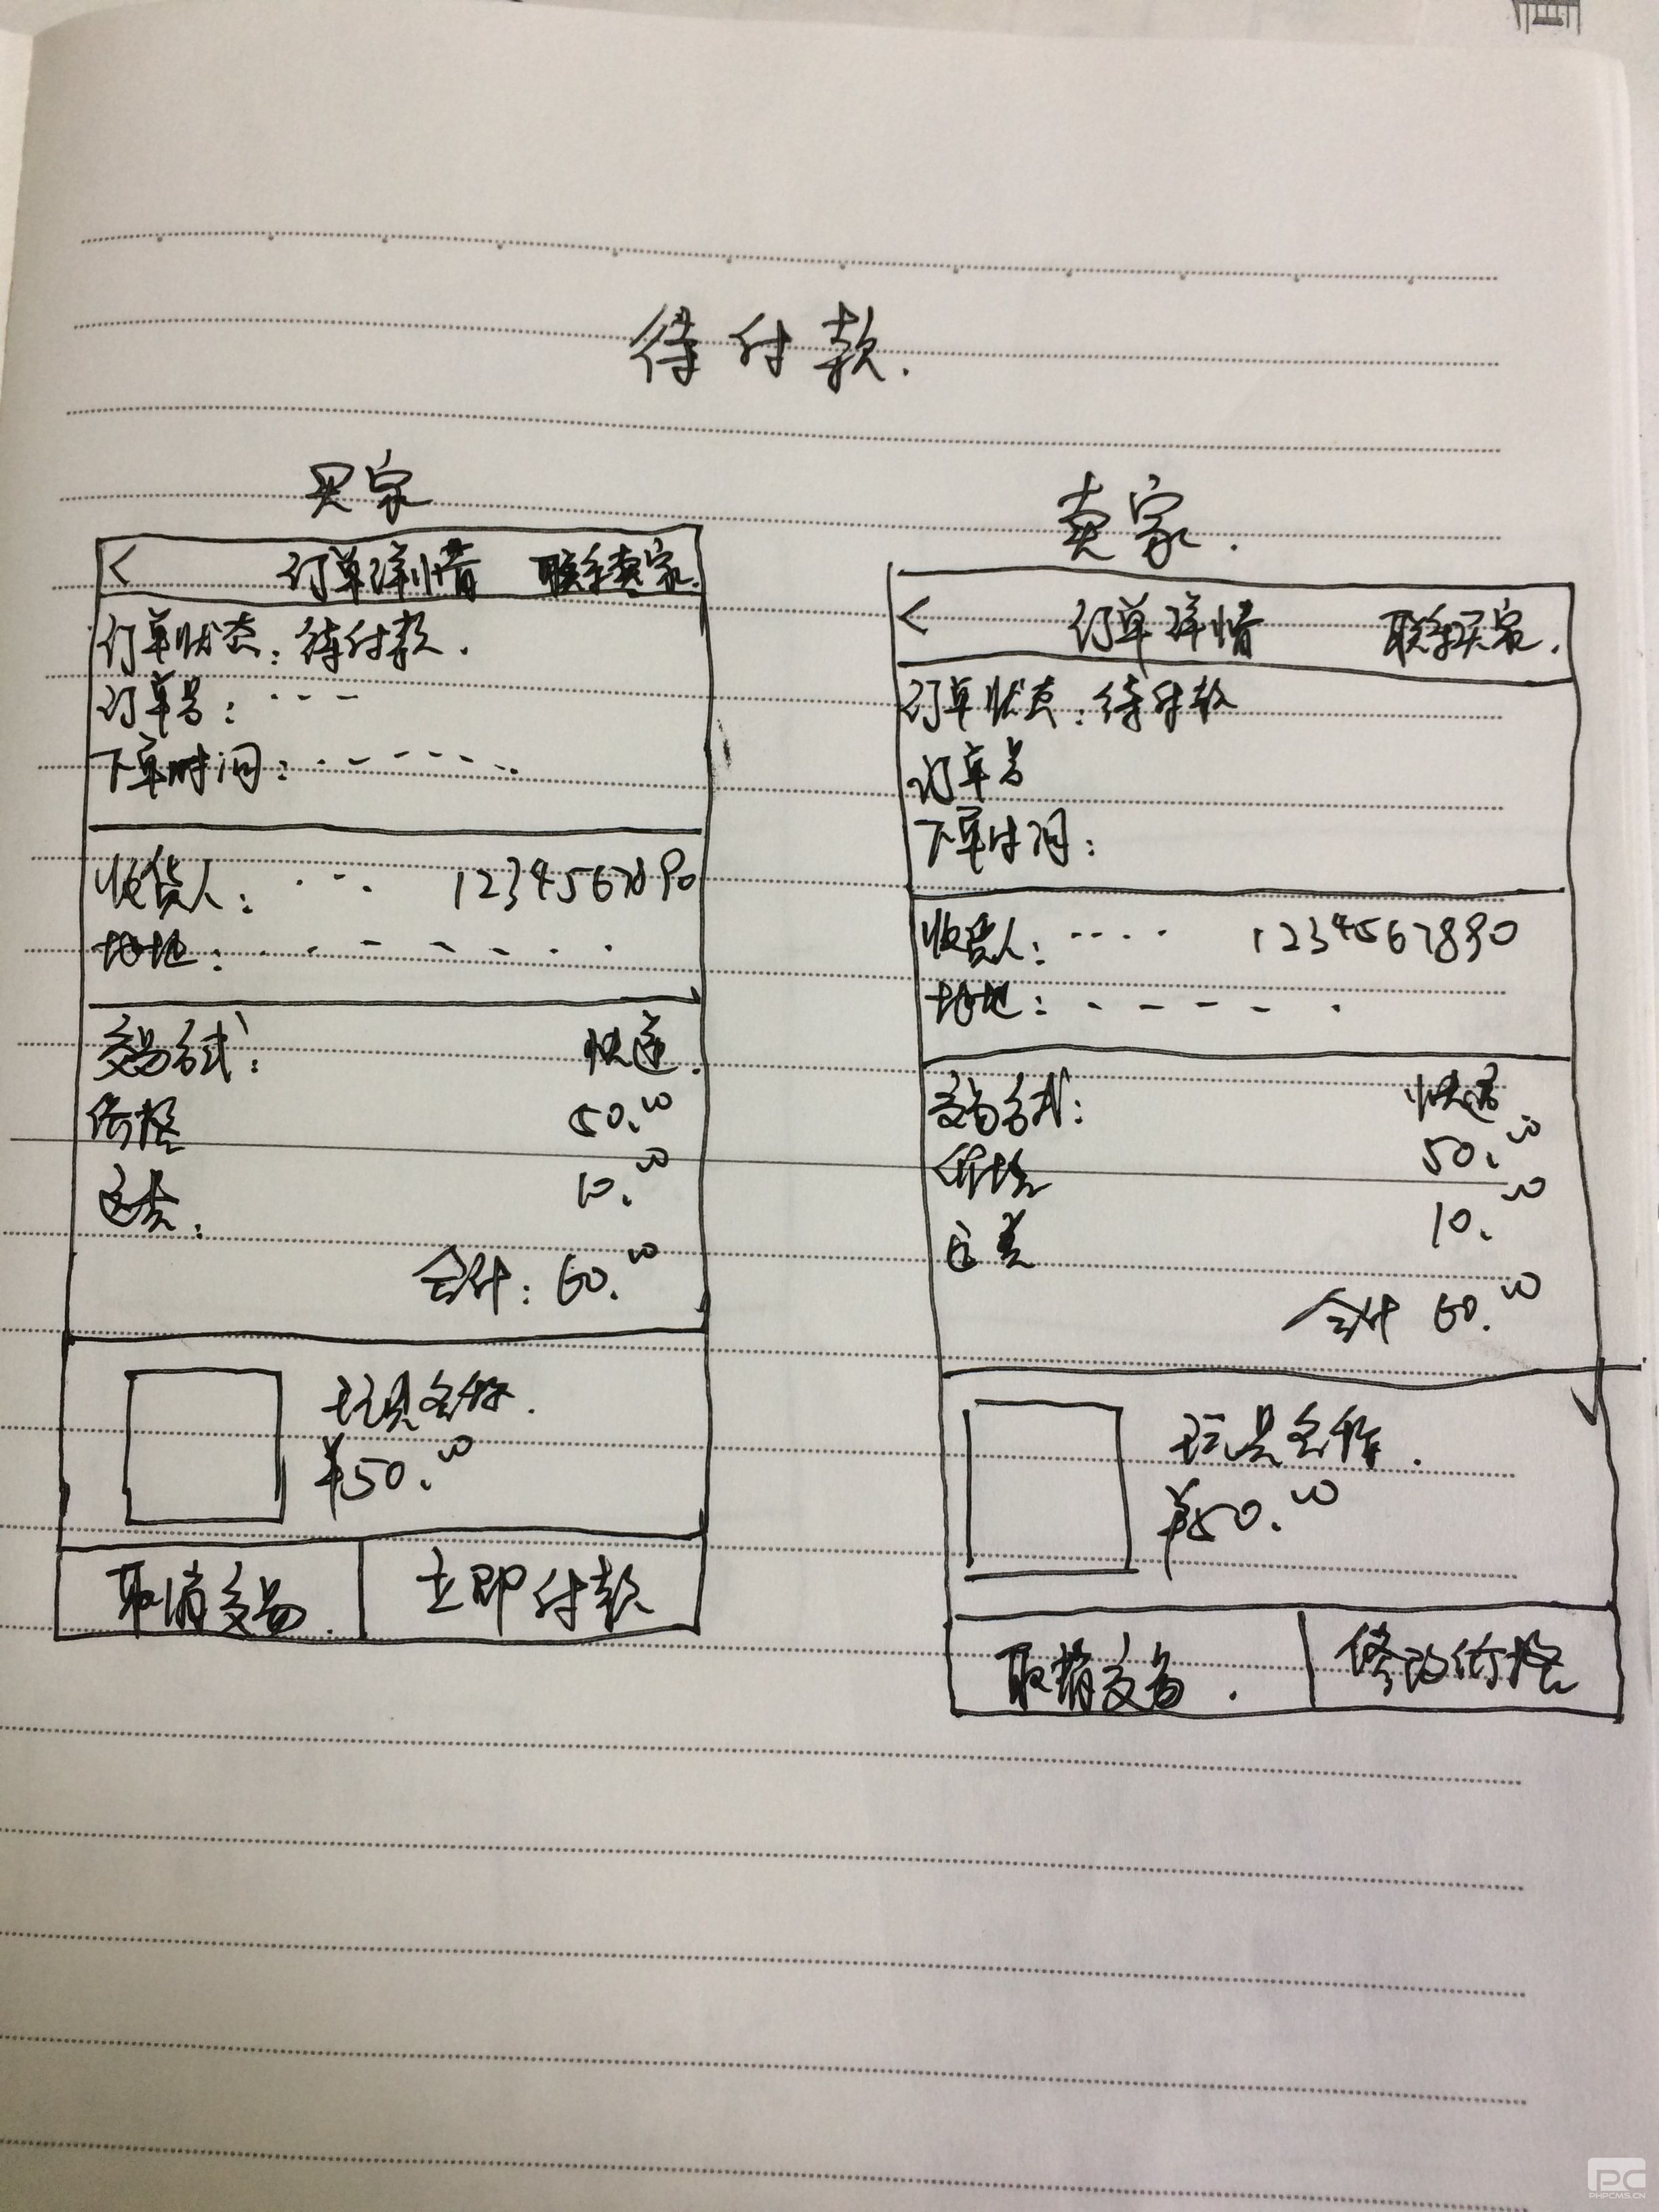 待付款.
买家
< 订单详情 联系卖家.
订单状态: 待付款.
订单号:
下单时间:
收货人: 1234567890
地址:
交易方式: 快递.
价格 50.00
运费: 10.00
合计: 60.00
玩具名称.
¥50.00
取消交易. 立即付款
卖家.
< 订单详情 联系买家.
订单状态: 待付款
订单号
下单时间:
收货人: 1234567890
地址:
交易方式: 快递.
价格 50.00
运费 10.00
合计 60.00
玩具名称.
¥50.00
取消交易. 修改价格
PC
PHPCMS.CN